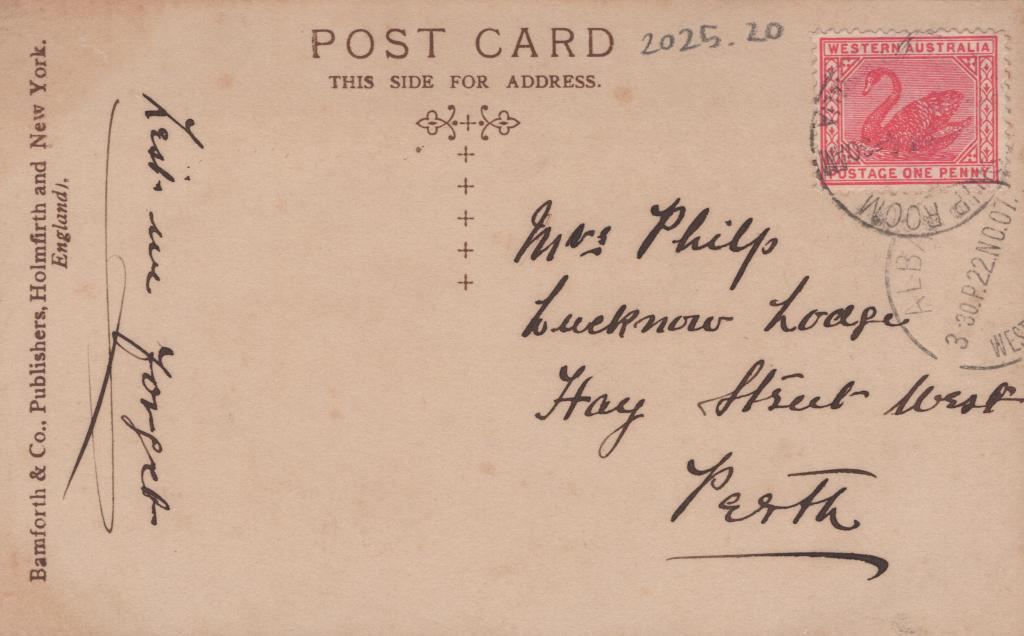 POST CARD
THIS SIDE FOR ADDRESS.
2025.20
WESTERN AUSTRALIA
POSTAGE ONE PENNY
ROOM
3 30.P.22.NO.07.
WEST
Mrs Philp
Lucknow Lodge
Hay Street West
Perth
Lest we forget
Bamforth & Co., Publishers, Holmfirth and New York.
England),